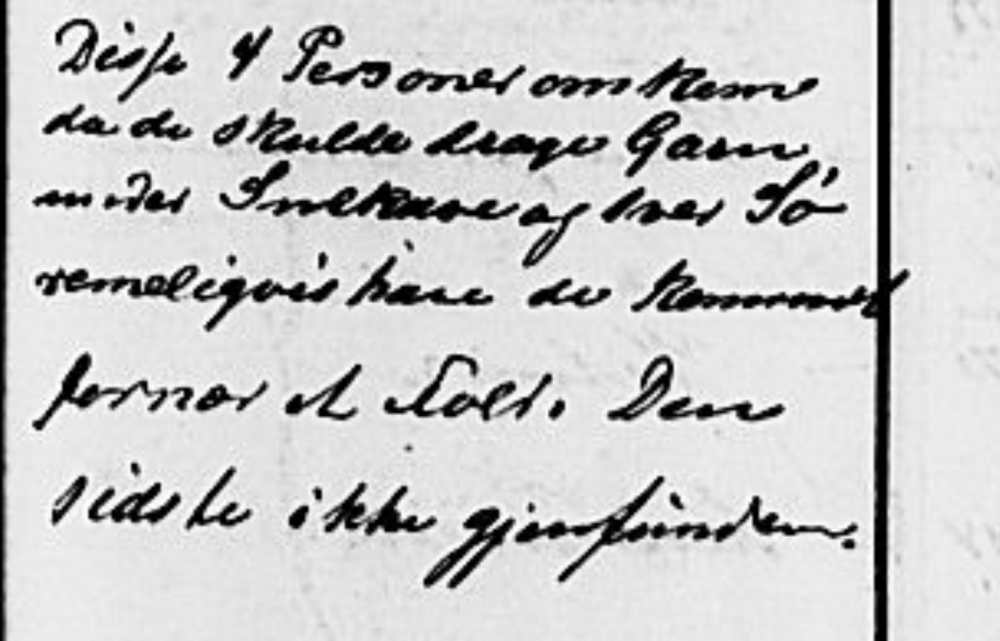 Disse 4 Personer omkom
da de skulde drage Garn
under Snekave og svær Sø
remeligvis have de kommet
for nær et Fald. Den
sidste ikke gjenfunden.